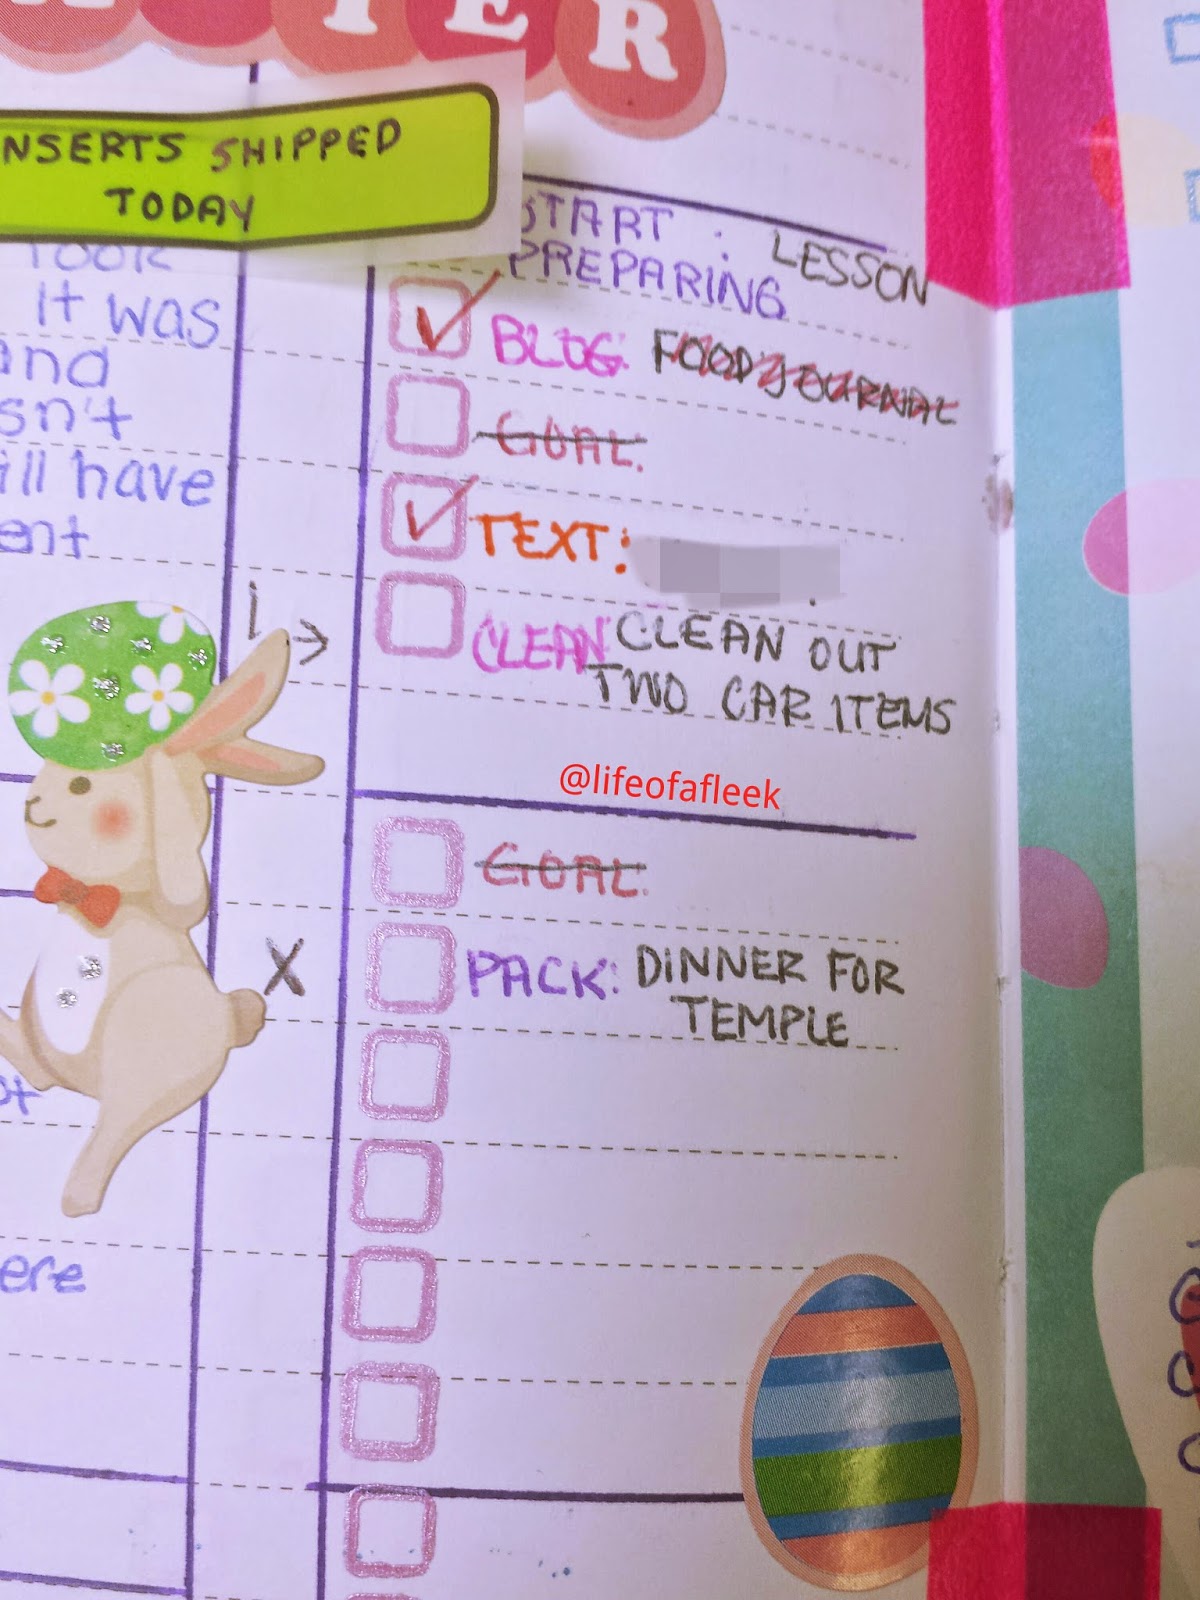 TER
NSERTS SHIPPED
TODAY
START : LESSON
PREPARING
It was
BLOG: FOOD JOURNAL
and
sn't
GOAL:
ill have
ent
TEXT:
CLEAN CLEAN OUT
TWO CAR ITEMS
@lifeofafleek
GOAL:
X
PACK: DINNER FOR
TEMPLE
ere